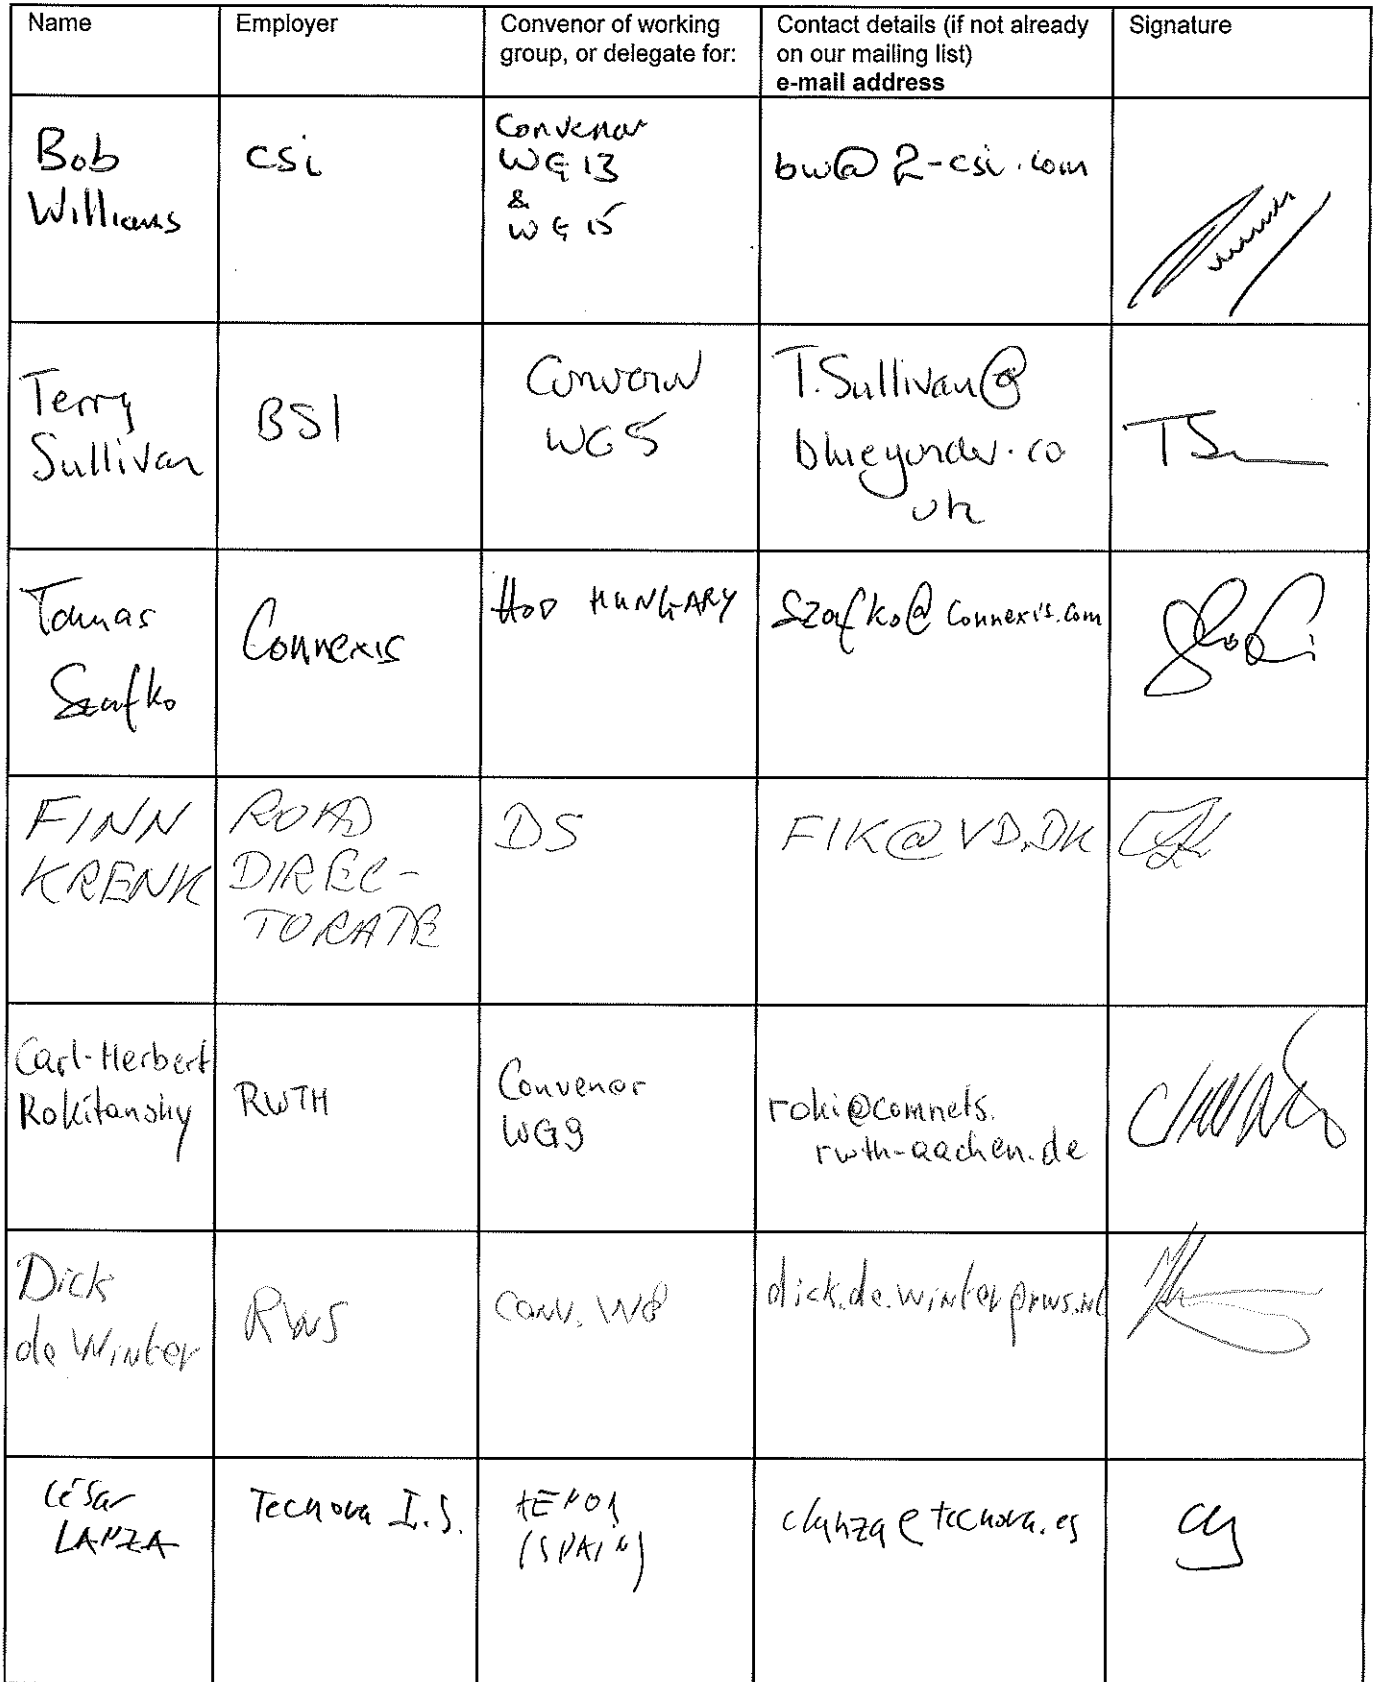 Name
Employer
Convenor of working
group, or delegate for:
Contact details (if not already
on our mailing list)
e-mail address
Signature
Bob
Williams
csi
Convenor
WG 13
&
WG 15
bw@2-csi.com
Terry
Sullivan
BSI
Convenor
WG5
T.Sullivan@
blueyonder.co
uk
Tamas
Szafko
Connexis
HOD HUNGARY
Szafko@connexis.com
FINN
KRENK
ROAD
DIREC-
TORATE
DS
FIK@VD.DK
Carl-Herbert
Rokitansky
RWTH
Convenor
WG9
roki@comnets.
rwth-aachen.de
Dick
de Winter
RWS
Conv. W8
dick.de.winter@rws.nl
César
LANZA
Tecnova I.S.
(SPAIN)
clanza@tecnova.es